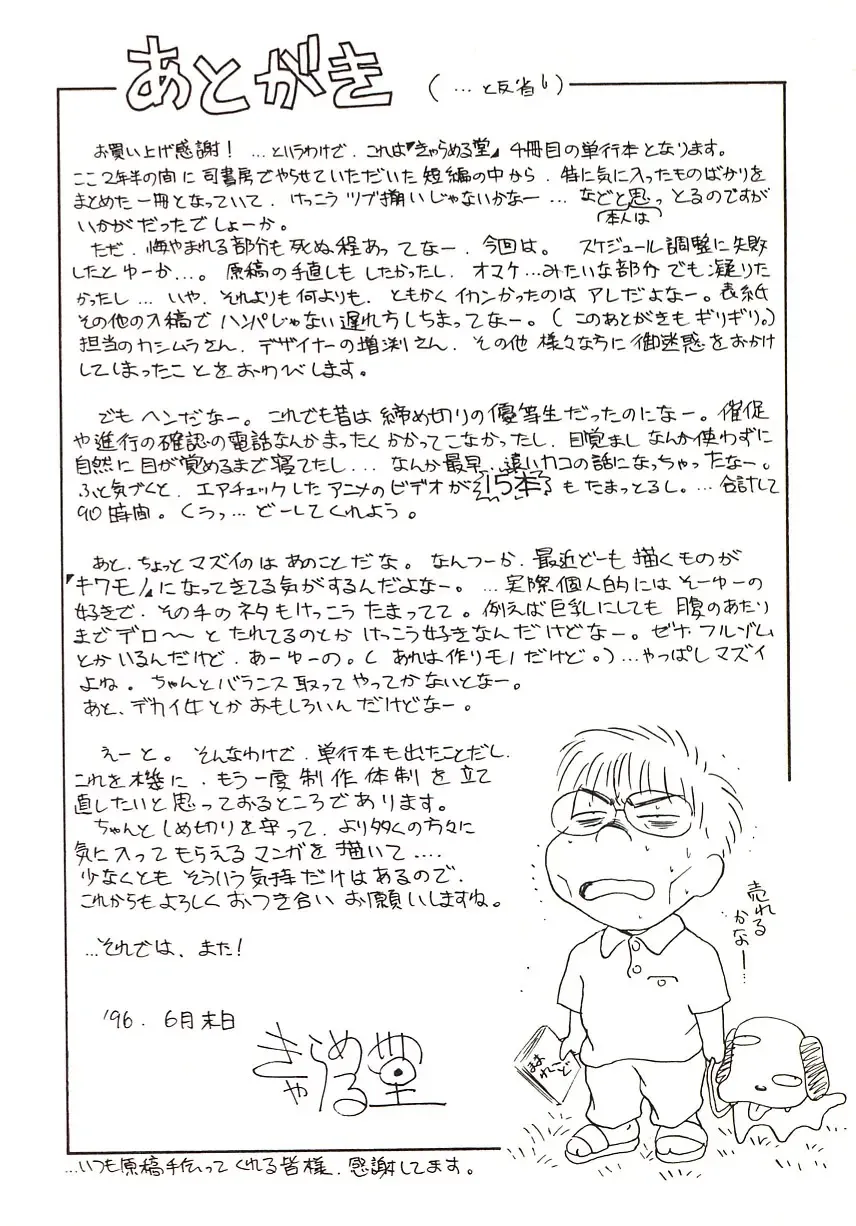 あとがき
(…と反省も)
お買い上げ感謝! …というわけで、これは『きゃらめる堂』4冊目の単行本となります。
ここ2年半の間に司書房でやらせていただいた短編の中から、特に気に入ったものばかりを
まとめた一冊となっていて、けっこうツブ揃いじゃないかなー…などと思っとるのですが
(本人は)
いかがだったでしょーか。
ただ、悔やまれる部分も死ぬ程あってなー、今回は。 スケジュール調整に失敗
したとゆーか…。原稿の手直しもしたかったし、オマケ…みたいな部分でも凝りた
かったし…いや、それよりも何よりも、ともかくイカンかったのはアレだよなー。表紙
その他の入稿でハンパじゃない遅れ方しちまってなー。(このあとがきもギリギリ。)
担当のカシムラさん、デザイナーの増渕さん、その他様々な方に御迷惑をおかけ
してしまったことをおわびします。
でもヘンだなー。これでも昔は締め切りの優等生だったのになー。催促
や進行の確認の電話なんかまったくかかってこなかったし、目覚ましなんか使わずに
自然に目が覚めるまで寝てたし…なんか最早、遠いカコの話になっちゃったなー。
ふと気づくと、エアチェックしたアニメのビデオが15本もたまっとるし。…合計して
90時間。くうっ…どーしてくれよう。
あと、ちょっとマズイのはあのことだな。なんつーか、最近どーも描くものが
『キワモノ』になってきてる気がするんだよなー。…実際個人的にはそーゆーの
好きで、その手のネタもけっこうたまってて。例えば巨乳にしても腹のあたり
までデロ〜〜とたれてるのとかけっこう好きなんだけどなー。ゼナ、フルゾム
とかいるんだけど、あーゆーの。(あれは作りモノだけど。)…やっぱしマズイ
よね。ちゃんとバランス取ってやってかないとなー。
あと、デカイ女とかおもしろいんだけどなー。
えーと。そんなわけで、単行本も出たことだし、
これを機に、もう一度制作体制を立て
直したいと思っておるところであります。
ちゃんとしめ切りを守って、より多くの方々に
気に入ってもらえるマンガを描いて….
少なくともそういう気持だけはあるので、
これからもよろしくおつき合いお願いしますね。
…それでは、また!
'96. 6月末日
きゃらめる堂
売れる
かなー…
ほれ
れこど
…いつも原稿手伝ってくれる皆様、感謝してます。